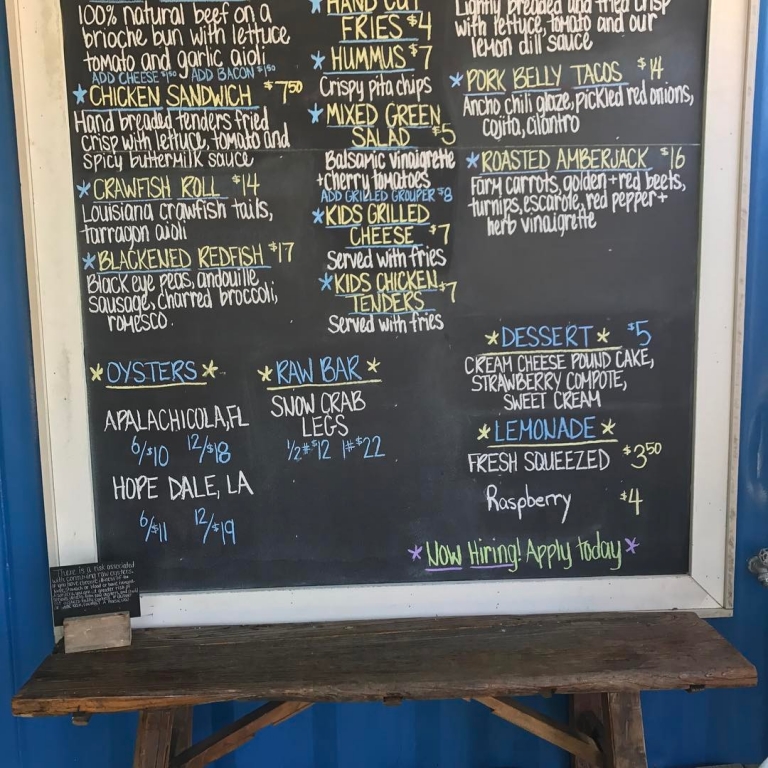 100% natural beef on a
brioche bun with lettuce
tomato and garlic aioli
ADD CHEESE $1.50 ADD BACON $1.50
CHICKEN SANDWICH $7.50
Hand breaded tenders fried
crisp with lettuce, tomato and
spicy buttermilk sauce
CRAWFISH ROLL $14
Louisiana crawfish tails,
tarragon aioli
BLACKENED REDFISH $17
Black eye peas, andouille
sausage, charred broccoli,
romesco.
HAND CUT
FRIES $4
HUMMUS $7
Crispy pita chips
MIXED GREEN
SALAD $5
Balsamic vinaigrette
+ cherry tomatoes
ADD GRILLED GROUPER $8
KIDS GRILLED
CHEESE $7
Served with fries
KIDS CHICKEN
TENDERS $7
Served with fries
Lightly breaded and fried crisp
with lettuce, tomato and our
lemon dill sauce
PORK BELLY TACOS $14
Ancho chili glaze, pickled red onions,
cojita, cilantro
ROASTED AMBERJACK $16
Farm carrots, golden + red beets,
turnips, escarole, red pepper +
herb vinaigrette
OYSTERS
APALACHICOLA, FL
6/$10 12/$18
HOPE DALE, LA
6/$11 12/$19
RAW BAR
SNOW CRAB
LEGS
1/2#$12 1#$22
DESSERT $5
CREAM CHEESE POUND CAKE,
STRAWBERRY COMPOTE,
SWEET CREAM
LEMONADE
FRESH SQUEEZED $3.50
Raspberry $4
Now Hiring! Apply today
There is a risk associated
with consuming raw oysters.